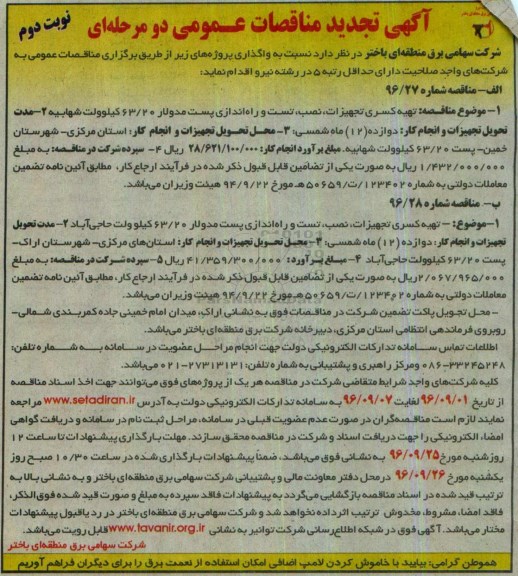 آگهی تجدید مناقصات عمومی دو مرحله‌ای
نوبت دوم
شرکت سهامی برق منطقه‌ای باختر در نظر دارد نسبت به واگذاری پروژه‌های زیر از طریق برگزاری مناقصات عمومی به
شرکت‌های واجد صلاحیت دارای حداقل رتبه ۵ در رشته نیرو اقدام نماید:
الف- مناقصه شماره ۹۶/۲۷
۱- موضوع مناقصه: تهیه کسری تجهیزات، نصب، تست و راه‌اندازی پست مدولار ۶۳/۲۰ کیلوولت شهابیه ۲-مدت
تحویل تجهیزات و انجام کار: دوازده (۱۲) ماه شمسی: ۳- محل تحویل تجهیزات و انجام کار: استان مرکزی- شهرستان
خمین- پست ۶۳/۲۰ کیلوولت شهابیه. مبلغ برآورد انجام کار: ۲۸/۶۲۱/۱۰۰/۰۰۰ ریال ۴- سپرده شرکت در مناقصه: به مبلغ
۱/۴۳۲/۰۰۰/۰۰۰ ریال به صورت یکی از تضامین قابل قبول ذکر شده در فرآیند ارجاع کار، مطابق آئین نامه تضمین
معاملات دولتی به شماره ۱۲۳۴۰۲/ت/۵۰۶۵۹ هـ مورخ ۹۴/۹/۲۲ هیئت وزیران می‌باشد.
ب- مناقصه شماره ۹۶/۲۸
۱-موضوع: - تهیه کسری تجهیزات، نصب، تست و راه‌اندازی پست مدولار ۶۳/۲۰ کیلو ولت حاجی‌آباد ۲-مدت تحویل
تجهیزات و انجام کار: دوازده (۱۲) ماه شمسی: ۳- محل تحویل تجهیزات و انجام کار: استان‌های مرکزی- شهرستان اراک-
پست ۶۳/۲۰ کیلوولت حاجی‌آباد ۴- مبلغ برآورد: ۴۱/۳۵۹/۳۰۰/۰۰۰ ریال ۵- سپرده شرکت در مناقصه: به مبلغ
۲/۰۶۷/۹۶۵/۰۰۰ ریال به صورت یکی از تضامین قابل قبول ذکر شده در فرآیند ارجاع کار، مطابق آئین نامه تضمین
معاملات دولتی به شماره ۱۲۳۴۰۲/ت/۵۰۶۵۹ هـ مورخ ۹۴/۹/۲۲ هیئت وزیران می‌باشد.
- محل تحویل پاکت تضمین شرکت در مناقصات فوق به نشانی اراک، میدان امام خمینی جاده کمربندی شمالی-
روبروی فرماندهی انتظامی استان مرکزی، دبیرخانه شرکت برق منطقه‌ای باختر می‌باشد.
اطلاعات تماس سامانه تدارکات الکترونیکی دولت جهت انجام مراحل عضویت در سامانه به شماره تلفن:
۰۸۶-۳۳۲۴۵۲۴۸ ومرکز راهبری و پشتیبانی به شماره تلفن: ۲۷۳۱۳۱۳۱-۰۲۱ می‌باشد.
کلیه شرکت‌های واجد شرایط متقاضی شرکت در مناقصه هر یک از پروژه‌های فوق می‌توانند جهت اخذ اسناد مناقصه
از تاریخ ۹۶/۰۹/۰۱ لغایت ۹۶/۰۹/۰۷ به سامانه تدارکات الکترونیکی دولت به آدرس www.setadiran.ir مراجعه
نمایند لازم است مناقصه‌گران در صورت عدم عضویت قبلی در سامانه، مراحل ثبت نام در سامانه و دریافت گواهی
امضاء الکترونیکی را جهت دریافت اسناد و شرکت در مناقصه محقق سازند. مهلت بارگذاری پیشنهادات تا ساعت ۱۲
روز شنبه مورخ ۹۶/۰۹/۲۵ به نشانی فوق می‌باشد، ضمناً پیشنهادات بارگذاری شده در ساعت ۱۰/۳۰ صبح روز
یکشنبه مورخ ۹۶/۰۹/۲۶ در محل دفتر معاونت مالی و پشتیبانی شرکت سهامی برق منطقه‌ای باختر و به نشانی بالا به
ترتیب قید شده در اسناد مناقصه بازگشایی می‌گردد به پیشنهادات فاقد سپرده به مبلغ و صورت قید شده فوق‌الذکر،
فاقد امضا، مشروط، مخدوش ترتیب اثر داده نخواهد شد و شرکت سهامی برق منطقه‌ای باختر در رد یا قبول پیشنهادات
مختار می‌باشد. آگهی فوق در شبکه اطلاع‌رسانی شرکت توانیر به نشانی www.tavanir.org.ir قابل رویت می‌باشد.
شرکت سهامی برق منطقه‌ای باختر
هموطن گرامی: بیایید با خاموش کردن لامپ اضافی امکان استفاده از نعمت برق را برای دیگران فراهم آوریم